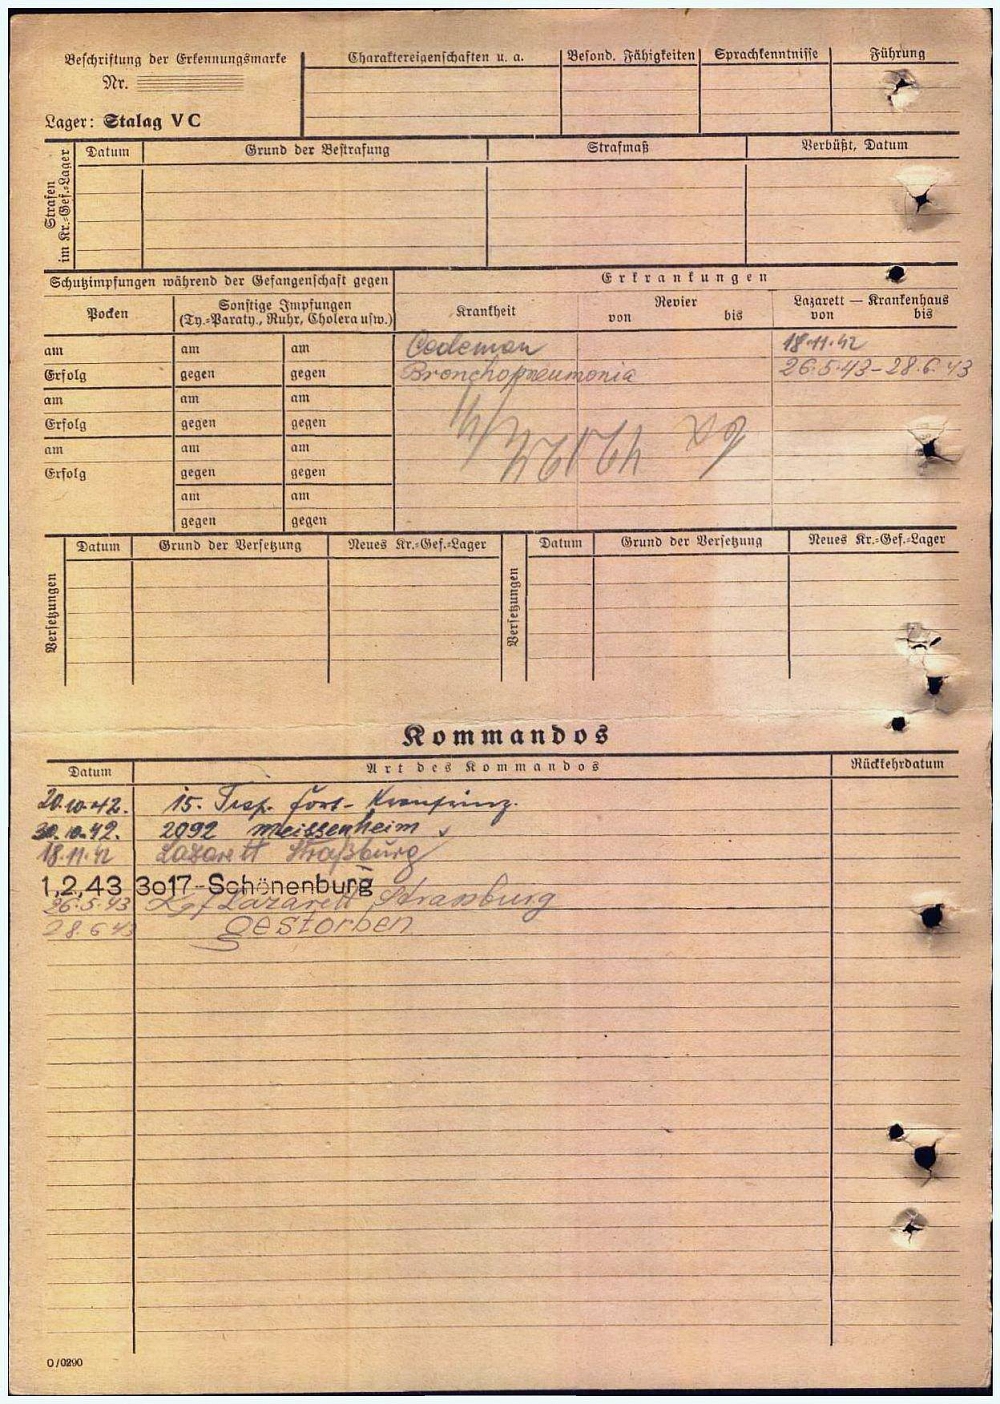 Beschriftung der Erkennungsmarke
Nr.
Lager: Stalag V C
Charaktereigenschaften u. a. Besond. Fähigkeiten Sprachkenntnisse Führung
Strafen im Kr.-Gef.-Lager
Datum Grund der Bestrafung Strafmaß Verbüßt, Datum
Schutzimpfungen während der Gefangenschaft gegen Erkrankungen
Pocken Sonstige Impfungen Krankheit Revier Lazarett — Krankenhaus
(Ty.-Paraty., Ruhr, Cholera usw.) von bis von bis
am am am 18.11.42
Erfolg gegen gegen Bronchopneumonia 26.5.43-28.6.43
am am am
Erfolg gegen gegen
am am am
Erfolg gegen gegen
am am
gegen gegen
Versetzungen
Datum Grund der Versetzung Neues Kr.-Gef.-Lager
Versetzungen
Datum Grund der Versetzung Neues Kr.-Gef.-Lager
Kommandos
Datum Art des Kommandos Rückkehrdatum
20.10.42. 15.
30.10.42. 2092 Meissenheim
18.11.42 Lazarett Straßburg
1,2,43 3o17-Schönenburg
26.5.43 Lazarett Strassburg
28.6.43 gestorben
O/0290